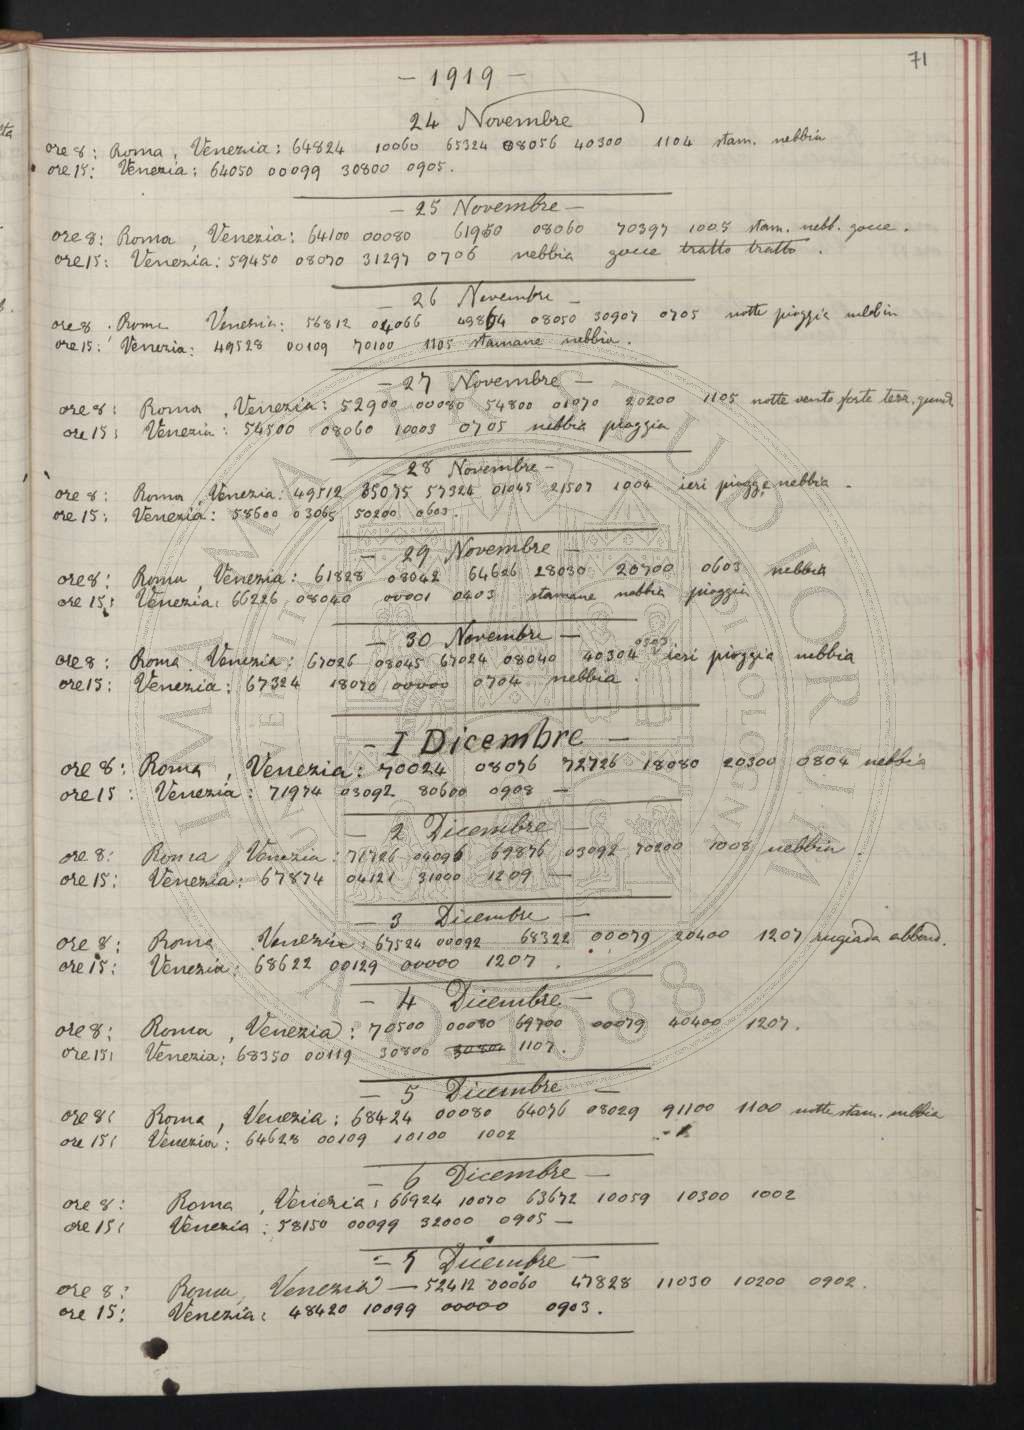 71
- 1919 -
24 Novembre
ore 8: Roma, Venezia: 64824 10060 65324 08056 40300 1104 stam. nebbia
ore 15: Venezia: 64050 00099 30800 0905.
- 25 Novembre -
ore 8: Roma, Venezia: 64100 00080 61950 08060 70397 1005 stam. nebb. gocce.
ore 15: Venezia: 59450 08070 31297 0706 nebbia gocce tratto tratto.
- 26 Novembre -
ore 8: Roma Venezia: 56812 04066 49864 08050 30907 0705 notte pioggia nebbia
ore 15: Venezia: 49528 00109 70100 1105 stamane nebbia.
- 27 Novembre -
ore 8: Roma, Venezia: 52900 00080 54800 01070 20200 1105 notte vento forte
ore 15: Venezia: 54500 08060 10003 0705 nebbia pioggia
- 28 Novembre -
ore 8: Roma, Venezia: 49512 35075 57324 01045 21507 1004 ieri pioggia nebbia.
ore 15: Venezia: 58600 03065 50200 0603.
- 29 Novembre -
ore 8: Roma, Venezia: 61828 08042 64626 28030 20700 0603 nebbia
ore 15: Venezia: 66226 08040 00001 0403 stamane nebbia pioggia
- 30 Novembre -
ore 8: Roma. Venezia: 67026 08045 67024 08040 40304 0303 ieri pioggia nebbia
ore 15: Venezia: 67324 18070 00000 0704 nebbia.
- 1 Dicembre -
ore 8: Roma, Venezia: 70024 08076 72726 18080 20300 0804 nebbia
ore 15: Venezia: 71974 03092 80600 0908 -
- 2 Dicembre -
ore 8: Roma, Venezia: 71726 04096 69876 03092 70200 1008 nebbia.
ore 15: Venezia: 67874 04121 31000 1209 -
- 3 Dicembre -
ore 8: Roma Venezia: 67524 00092 68322 00079 20400 1207 rugiada abbond.
ore 15: Venezia: 68622 00129 00000 1207.
- 4 Dicembre -
ore 8: Roma, Venezia: 70500 00080 69700 00079 40400 1207.
ore 15: Venezia: 68350 00119 30800 1107.
- 5 Dicembre -
ore 8: Roma, Venezia: 68424 00080 64076 08029 91100 1100 notte stam. nebbia
ore 15: Venezia: 64628 00109 10100 1002
- 6 Dicembre -
ore 8: Roma, Venezia: 66924 10070 63672 10059 10300 1002
ore 15: Venezia: 58150 00099 32000 0905 -
- 7 Dicembre -
ore 8: Roma, Venezia - 52412 00060 47828 11030 10200 0902.
ore 15: Venezia: 48420 10099 00000 0903.
ALMA MATER STUDIORUM
UNIVERSITÀ DI BOLOGNA
A.D. 1088